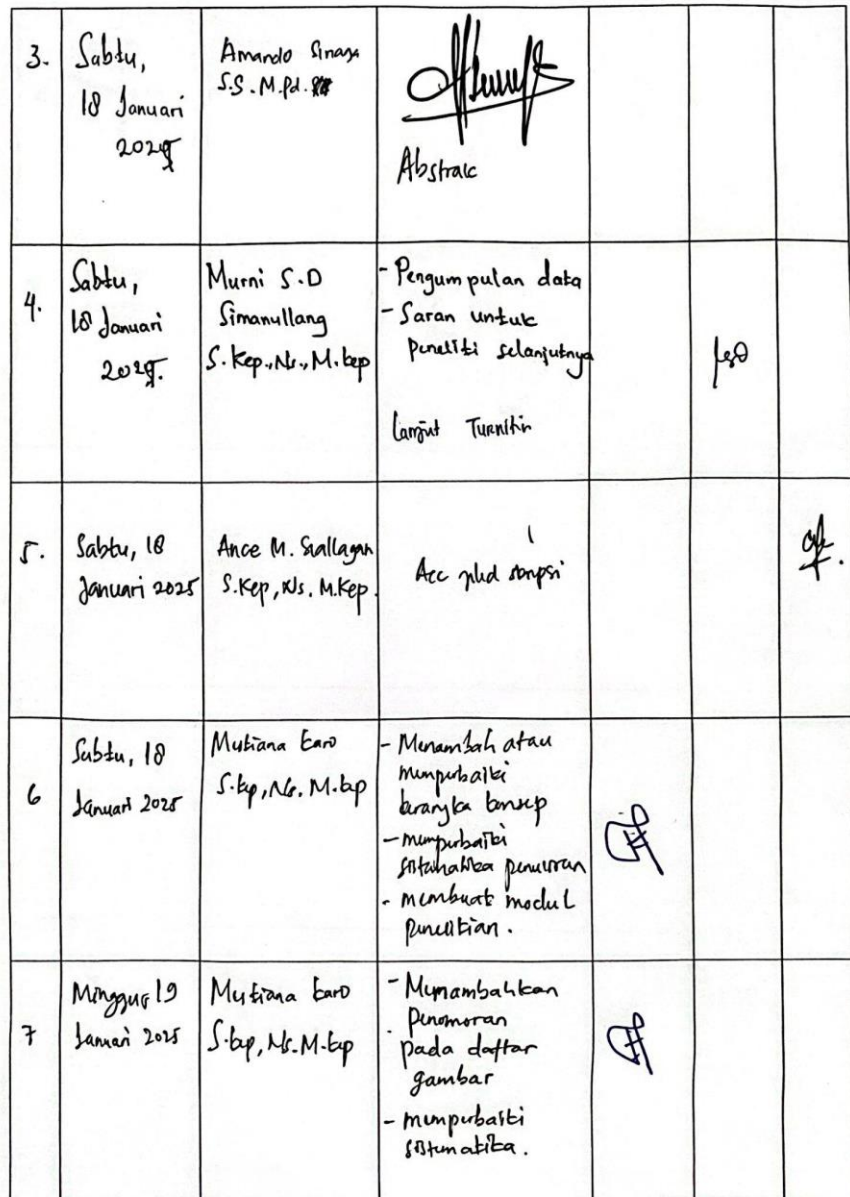 3.
Sabtu,
18 Januari
2025
Amando Sinaga
S.S. M.Pd.
Abstrak
4.
Sabtu,
18 Januari
2025.
Murni S.D
Simanullang
S.Kep.,Ns., M.kep
- Pengumpulan data
- Saran untuk
peneliti selanjutnya
lanjut Turnitin
5.
Sabtu, 18
Januari 2025
Ance M. Siallagan
S.Kep, Ns. M.Kep.
Acc jilid skripsi
6
Sabtu, 18
Januari 2025
Mestiana karo
S.kep, Ns. M.kep
- Menambah atau
memperbaiki
kerangka konsep
- memperbaiki
sistematika penulisan
- membuat modul
penelitian.
7
Minggu 19
Januari 2025
Mestiana karo
S.kep, Ns. M.kep
- Menambahkan
penomoran
pada daftar
gambar
- memperbaiki
sistematika.